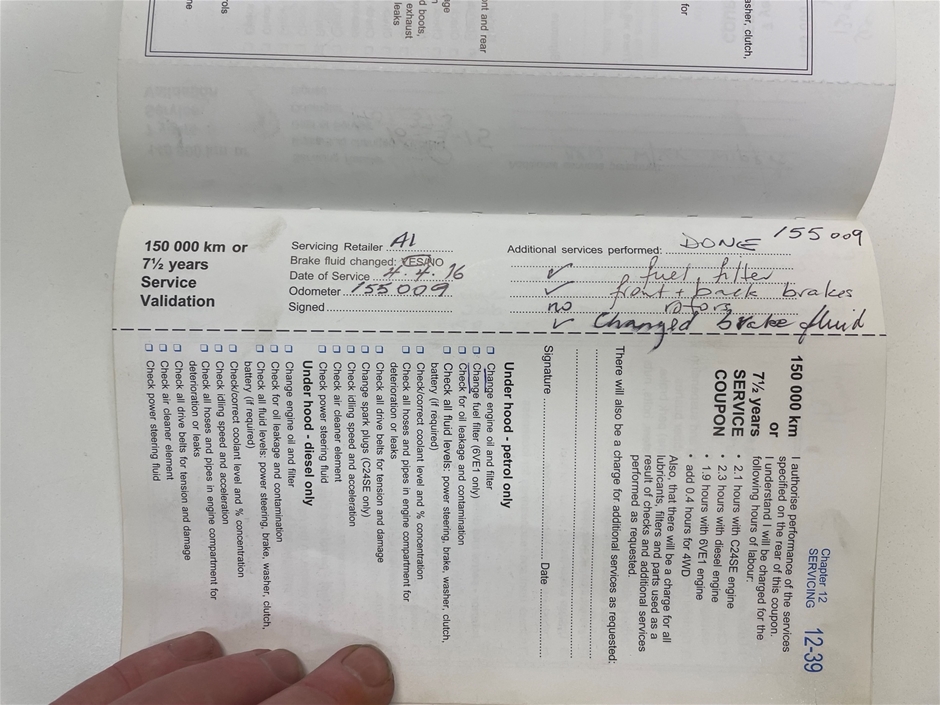 rols
ne
nge
d boots,
exhaust
leaks
ont and rear
for
asher, clutch,
150 000 km or
7½ years
Service
Validation
Servicing Retailer A1
Brake fluid changed: YES/NO
Date of Service 4.4.16
Odometer 155009
Signed
Additional services performed: DONE 155009
✓ fuel filter
✓ front + back brakes
no rotors
✓ Changed brake fluid
Chapter 12
SERVICING 12-39
150 000 km
or
7½ years
SERVICE
COUPON
I authorise performance of the services
specified on the rear of this coupon.
I understand I will be charged for the
following hours of labour:
• 2.1 hours with C24SE engine
• 2.3 hours with diesel engine
• 1.9 hours with 6VE1 engine
• add 0.4 hours for 4WD
Also, that there will be a charge for all
lubricants, filters and parts used as a
result of checks and additional services
performed as requested.
There will also be a charge for additional services as requested:
Signature Date
Under hood - petrol only
Change engine oil and filter
Change fuel filter (6VE1 only)
Check for oil leakage and contamination
Check all fluid levels: power steering, brake, washer, clutch,
battery (if required)
Check/correct coolant level and % concentration
Check all hoses and pipes in engine compartment for
deterioration or leaks
Check all drive belts for tension and damage
Change spark plugs (C24SE only)
Check idling speed and acceleration
Check air cleaner element
Check power steering fluid
Under hood - diesel only
Change engine oil and filter
Check for oil leakage and contamination
Check all fluid levels: power steering, brake, washer, clutch,
battery (if required)
Check/correct coolant level and % concentration
Check idling speed and acceleration
Check all hoses and pipes in engine compartment for
deterioration or leaks
Check all drive belts for tension and damage
Check air cleaner element
Check power steering fluid